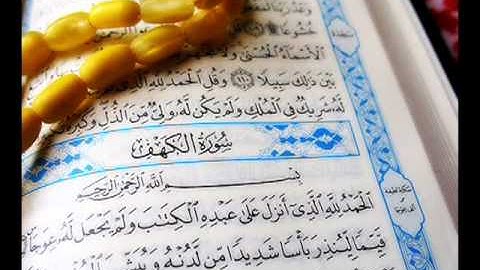 خُشُوعًا
الْأَسْمَاءُ الْحُسْنَىٰ
بَيْنَ ذَٰلِكَ سَبِيلًا ﴿١١٠﴾ وَقُلِ الْحَمْدُ لِلَّهِ الَّذِي
لَهُ شَرِيكٌ فِي الْمُلْكِ وَلَمْ يَكُن لَّهُ وَلِيٌّ مِّنَ الذُّلِّ وَكَبِّرْهُ
سُورَةُ الْكَهْفِ
بِسْمِ اللَّهِ الرَّحْمَٰنِ الرَّحِيمِ
الْحَمْدُ لِلَّهِ الَّذِي أَنزَلَ عَلَىٰ عَبْدِهِ الْكِتَابَ وَلَمْ يَجْعَل لَّهُ عِوَجَا
قَيِّمًا لِّيُنذِرَ بَأْسًا شَدِيدًا مِّن لَّدُنْهُ وَيُبَشِّرَ
سجدة